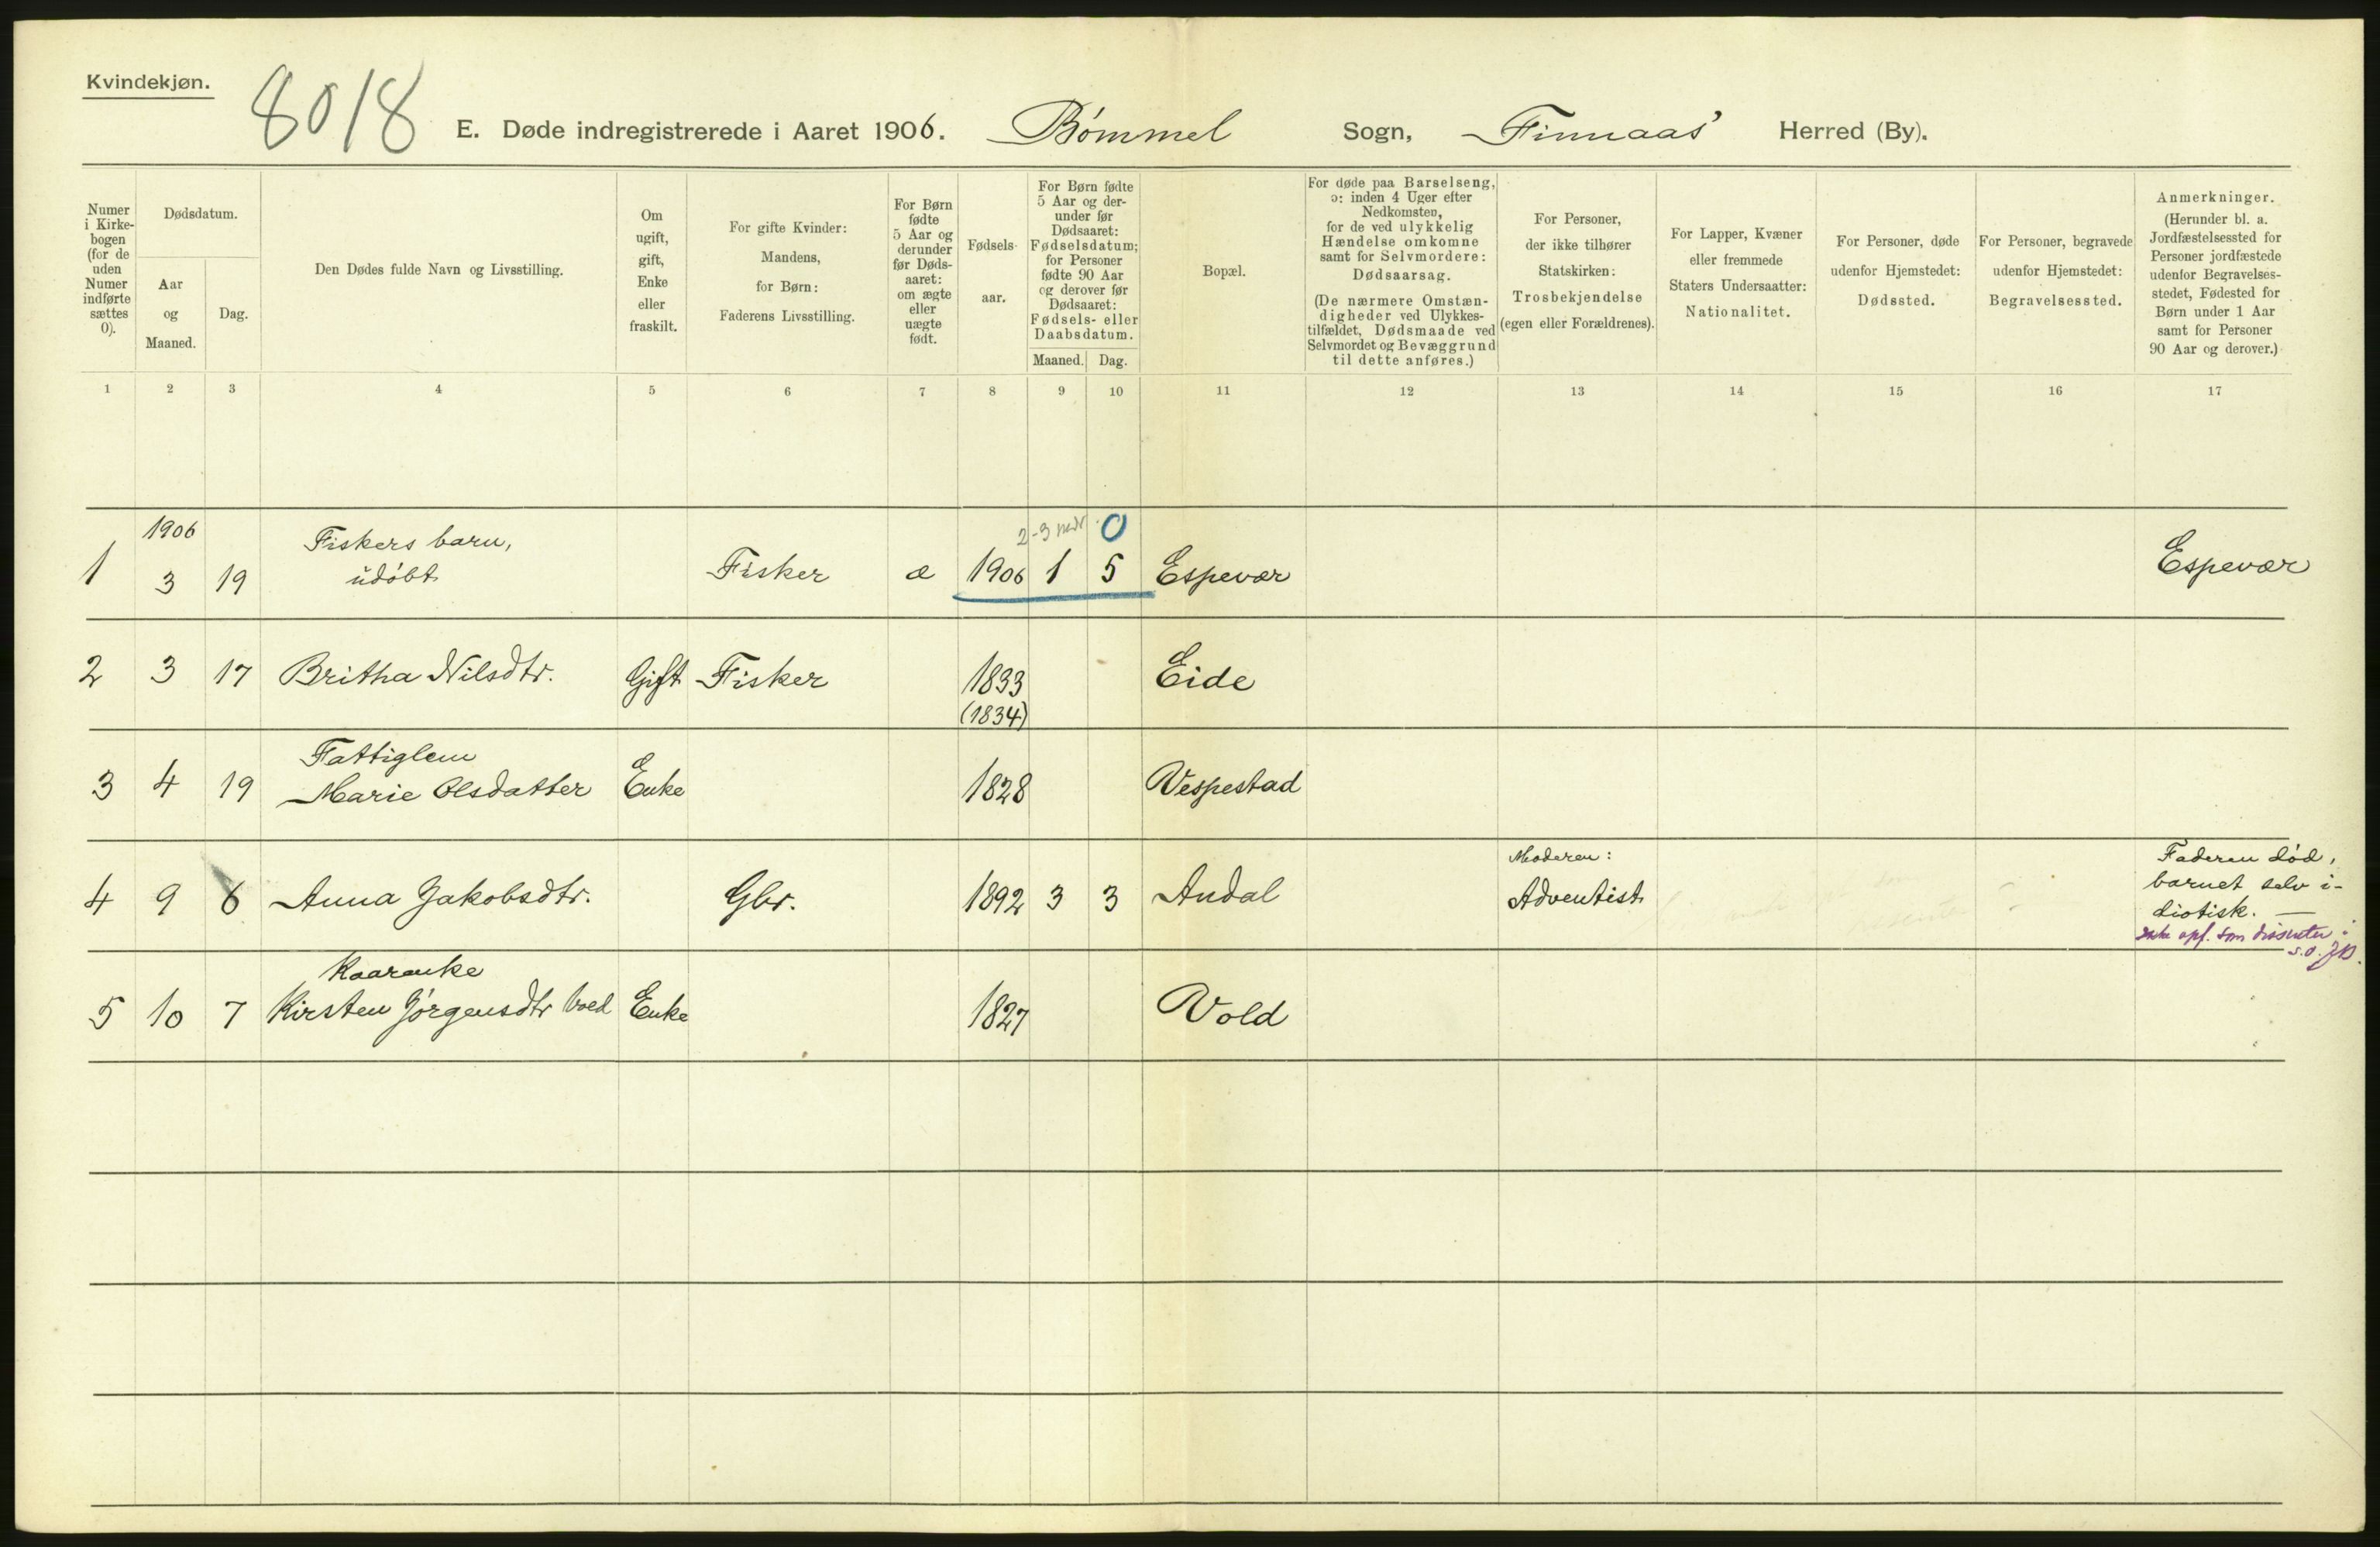 Kvindekjøn.
8018
E. Døde indregistrerede i Aaret 1906. Bømmel Sogn, Finnaas Herred (By).
Numer i Kirke- bogen (for de uden Numer indførte sættes 0).
Dødsdatum.
Aar og Maaned.
Dag.
Den Dødes fulde Navn og Livsstilling.
Om ugift, gift, Enke eller fraskilt.
For gifte Kvinder: Mandens, for Børn: Faderens Livsstilling.
For Børn fødte 5 Aar og derunder før Døds- aaret: om ægte eller uægte født.
Fødsels- aar.
For Børn fødte 5 Aar og der- under før Dødsaaret: Fødselsdatum; for Personer fødte 90 Aar og derover før Dødsaaret: Fødsels- eller Daabsdatum.
Maaned. Dag.
Bopæl.
For døde paa Barselseng, ɔ: inden 4 Uger efter Nedkomsten, for de ved ulykkelig Hændelse omkomne samt for Selvmordere: Dødsaarsag.
(De nærmere Omstæn- digheder ved Ulykkes- tilfældet, Dødsmaade ved Selvmordet og Bevæggrund til dette anføres.)
For Personer, der ikke tilhører Statskirken: Trosbekjendelse (egen eller Forældrenes).
For Lapper, Kvæner eller fremmede Staters Undersaatter: Nationalitet.
For Personer, døde udenfor Hjemstedet: Dødssted.
For Personer, begravede udenfor Hjemstedet: Begravelsessted.
Anmerkninger.
(Herunder bl. a. Jordfæstelsessted for Personer jordfæstede udenfor Begravelses- stedet, Fødested for Børn under 1 Aar samt for Personer 90 Aar og derover.)
1 2 3 4 5 6 7 8 9 10 11 12 13 14 15 16 17
1906 Fiskers barn, 2-3 mdr 0
1 3 19 udøbt Fisker æ 1906 1 5 Espevær Espevær
2 3 17 Britha Nilsdtr. Gift Fisker 1833 Eide
(1834)
Fattiglem
3 4 19 Marie Olsdatter Enke 1828 Vespestad
Moderen: Faderen død,
4 9 6 Anna Jakobsdtr. Gbr. 1892 3 3 Andal Adventist barnet selv i-
diotisk. —
opf. som dissenter
s.d.
Kaarenke
5 10 7 Kirsten Jørgensdtr Vold Enke 1827 Vold